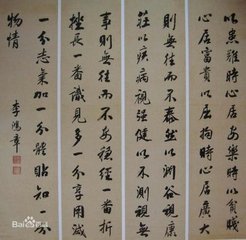 以患難時心居安樂以貧賤時
心居富貴以屈局時心居廣大
則無往而不泰然以淵谷視康
莊以疾病視強健以不測視無
事則無往而不安穩經一番折
挫長一番識見多一分享用減
一分志氣加一分體貼知一分
物情
李鴻章